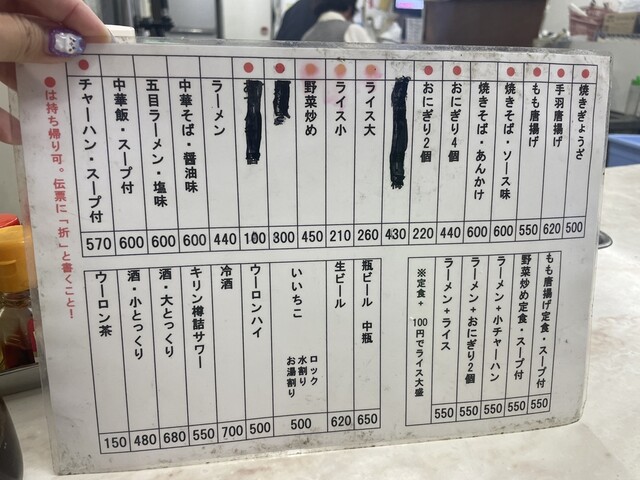 焼きぎょうざ 500
手羽唐揚げ 620
もも唐揚げ 550
焼きそば・ソース味 600
焼きそば・あんかけ 600
おにぎり4個 440
おにぎり2個 220
430
ライス大 260
ライス小 210
野菜炒め 450
300
100
ラーメン 440
中華そば・醤油味 600
五目ラーメン・塩味 600
中華飯・スープ付 600
チャーハン・スープ付 570
●は持ち帰り可。伝票に「折」と書くこと！
もも唐揚げ定食・スープ付 550
野菜炒め定食・スープ付 550
ラーメン+小チャーハン 550
ラーメン+おにぎり2個 550
ラーメン+ライス 550
※定食+100円でライス大盛
瓶ビール 中瓶 650
生ビール 620
いいちこ ロック 水割り お湯割り 500
ウーロンハイ 500
冷酒 700
キリン樽詰サワー 550
酒・大とっくり 680
酒・小とっくり 480
ウーロン茶 150